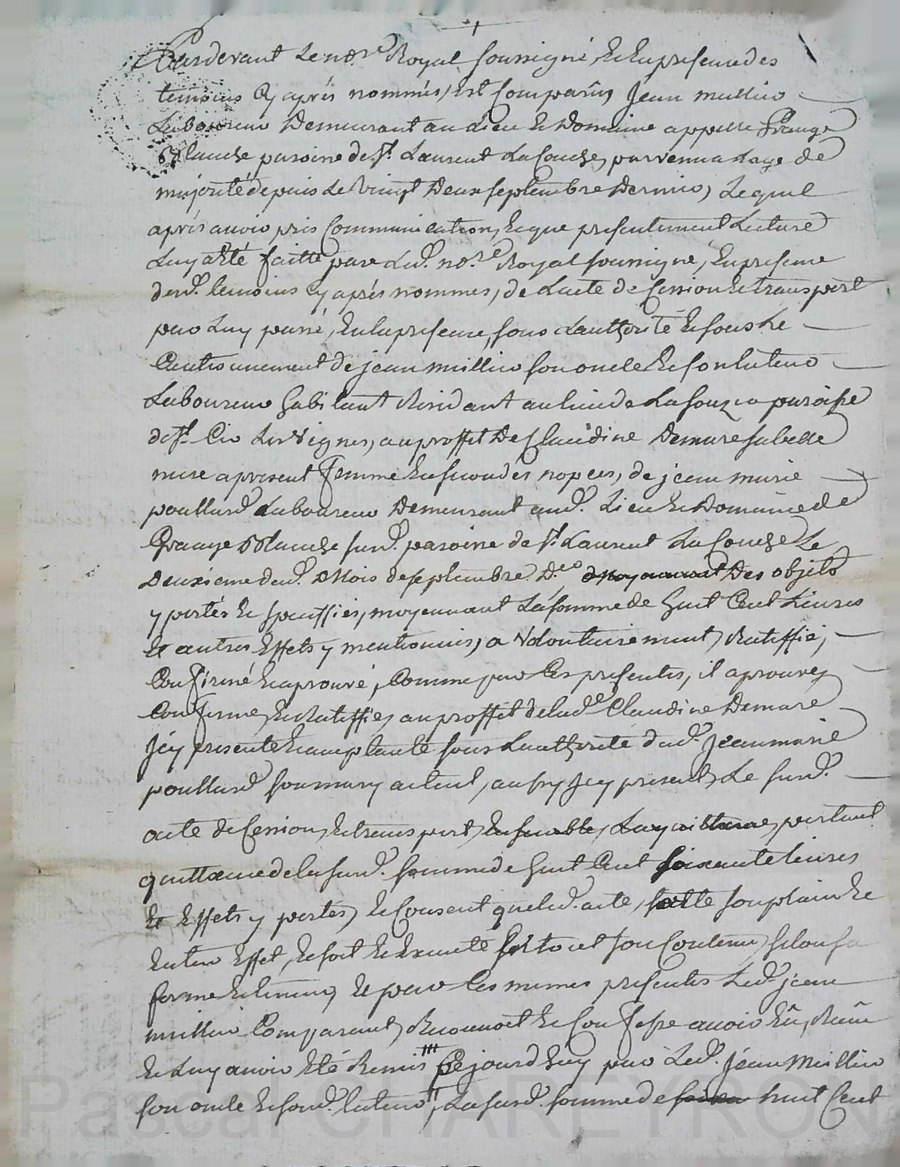 Pardevant Le no.re Royal soussigné, Et En presence des
temoins Cy après nommés, est Comparû Jean millier
Laboureur Demeurant au Lieu et Domaine appellé Grange
Blanche paroisse de St. Laurent La Conche, parvenu a Lage de
majorité depuis Le vingt Deux septembre Dernier, Lequel
après avoir pris Communication, Et que presentement Lecture
Luy a Eté faitte par Led. no.re Royal soussigné, En presence
desd. temoins Cy après nommés, de Lacte de Cession Et transport
par Luy passé, En La presence, sous Lauthorité Et sous Le
Cautionnement de jean millier son oncle Et son tuteur
Laboureur habitant Residant au lieu de paroisse
de St. Cir Les Vignes, au proffit De Claudine Demare sa belle
mere a present femme En secondes nopces, de jean marie
poullard Laboureur Demeurant aud. Lieu Et Domaine de
Grange Blanche susd. paroisse de St. Laurent La Conche Le
Deuxieme dud. Mois de septembre D.er Des objets
y portés Et specifiés, moyennant La somme de huit Cent Livres
Et autres Effets y mentionnés, a volontairement Ratiffié,
Confirmé Et aprouvé, Comme par Ces presentes, il aprouve,
Confirme, Et Ratiffie, au proffit de lad.e Claudine Demare
Jcy presente Et acceptante sous Lauthorité dud. Jean marie
poullard son mary actuel, aussy Jcy present, Le susd.
acte de Cession, Et transport, Ensemble, La quittance, portant
quittance de la susd. somme de huit Cent soixante livres
Et Effets y portés, Et Consent que led. acte, sorte son plain Et
Entier Effet, Et soit Et Executé son Contenu, selon sa
forme Et teneur, Et par Ces memes presentes Led. jean
millier Comparant, Reconnoit Et Confesse avoir Eû, Reçû
Et Luy avoir Eté Remis Cejourdhuy par Led. Jean Millier
son oncle Et sond. tuteur, La susd. somme de huit Cent
Pascal CHAREYRON